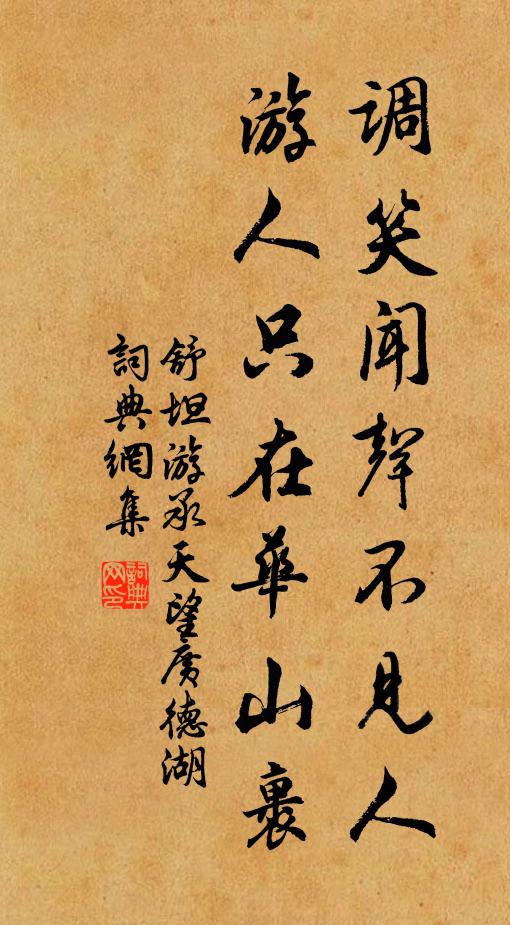 调笑闻声不见人
游人只在華山裏
舒坦游承天望广德湖
詞典網集
詞典网印